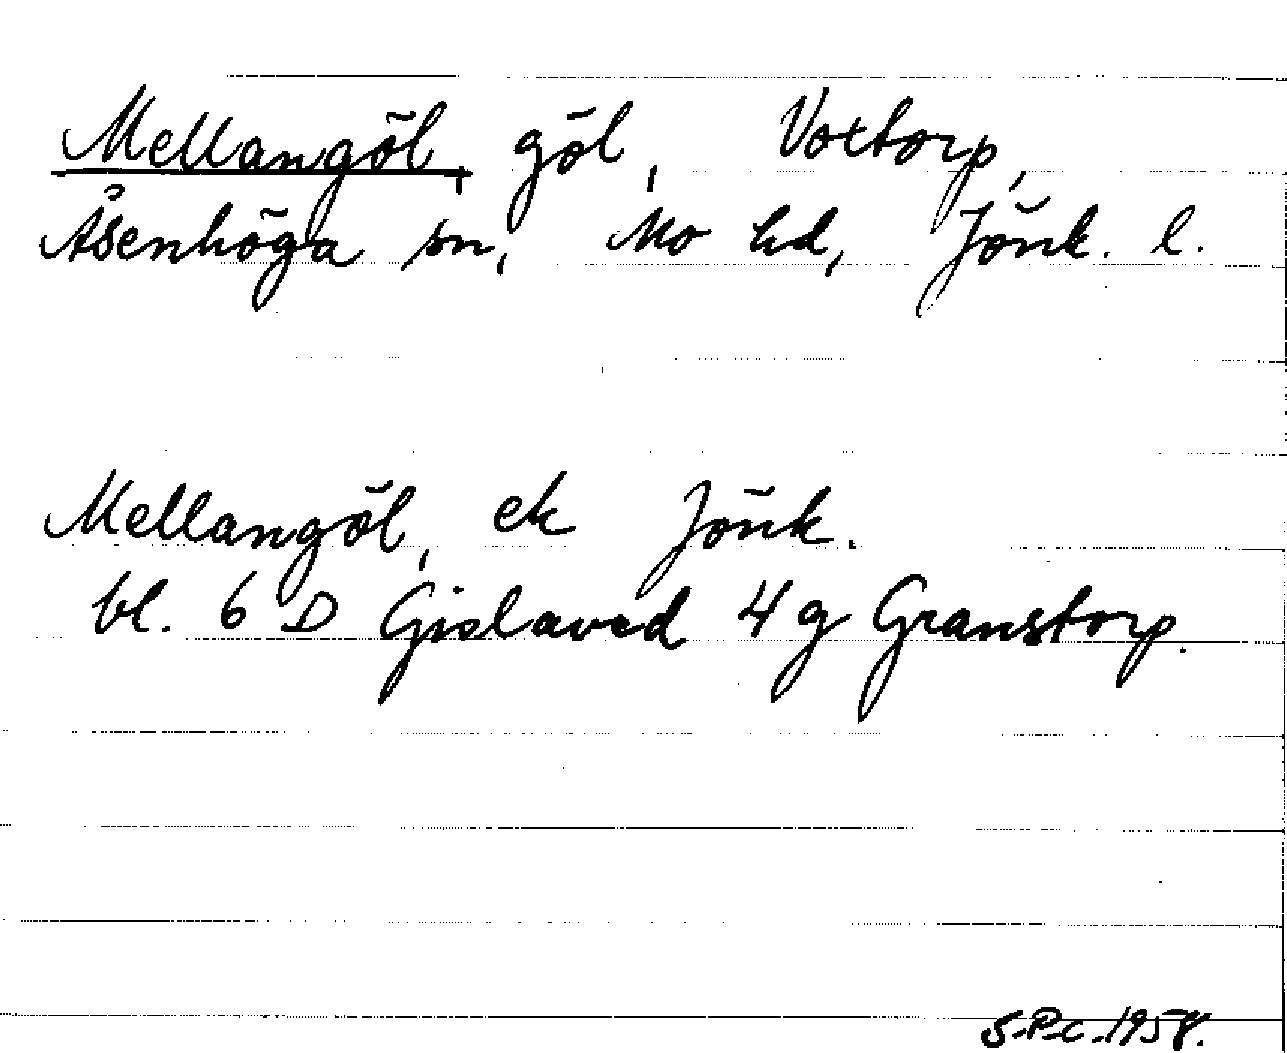 Mellangöl, göl, Voxtorp,
Åsenhöga sn, Mo hd, Jönk. l.
Mellangöl, ek Jönk.
bl. 6 D Gislaved 4 g Granstorp.
S.P.C. 1958.